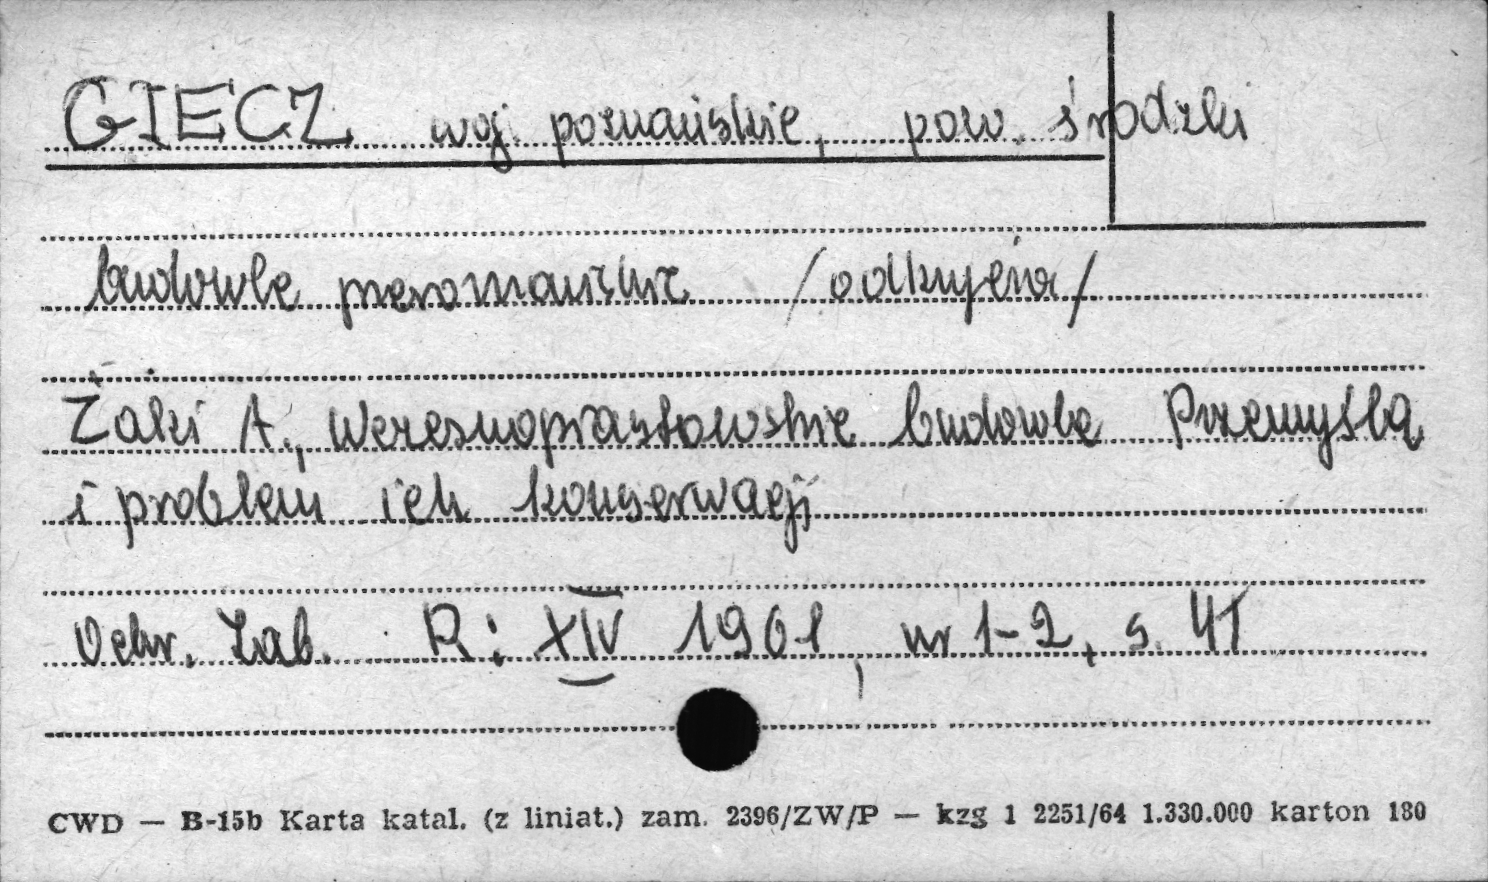 GIECZ woj. poznańskie, pow. średzki
budowle preromańskie /odkrycia/
Żaki A., Wczesnopiastowskie budowle Przemyśla
i problem ich konserwacji
Ochr. Zab. R: XIV 1961, nr 1-2, s. 41
CWD — B-15b Karta katal. (z liniat.) zam. 2396/ZW/P — kzg 1 2251/64 1.330.000 karton 180